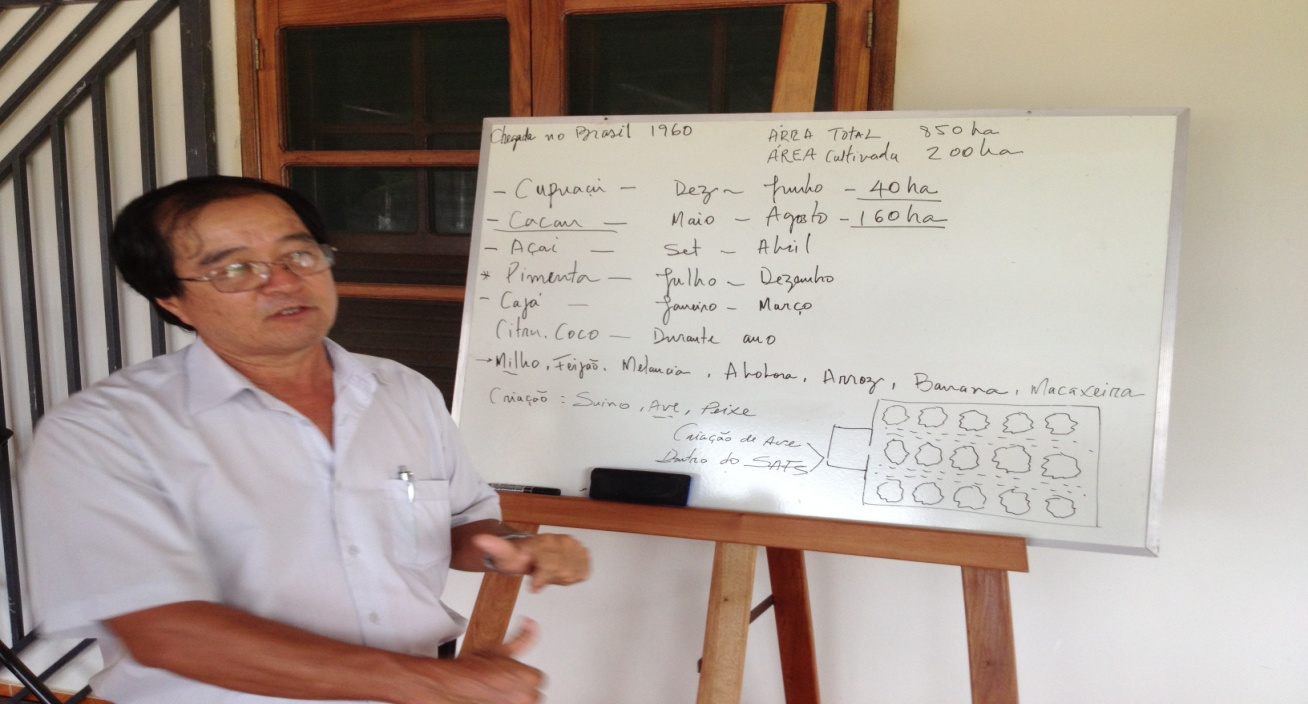 Chegada no Brasil 1960
ÁREA TOTAL 850 ha
ÁREA Cultivada 200 ha
- Cupuaçu - Dez - Junho - 40 ha
- Cacau - Maio - Agosto - 160 ha
- Açaí - Set - Abril
* Pimenta - Julho - Dezembro
- Cajá - Janeiro - Março
Citru. Coco - Durante ano
→ Milho, Feijão, Melancia, Abobora, Arroz, Banana, Macaxeira
Criação : Suino, Ave, Peixe
Criação de Ave
Dentro do SAFS